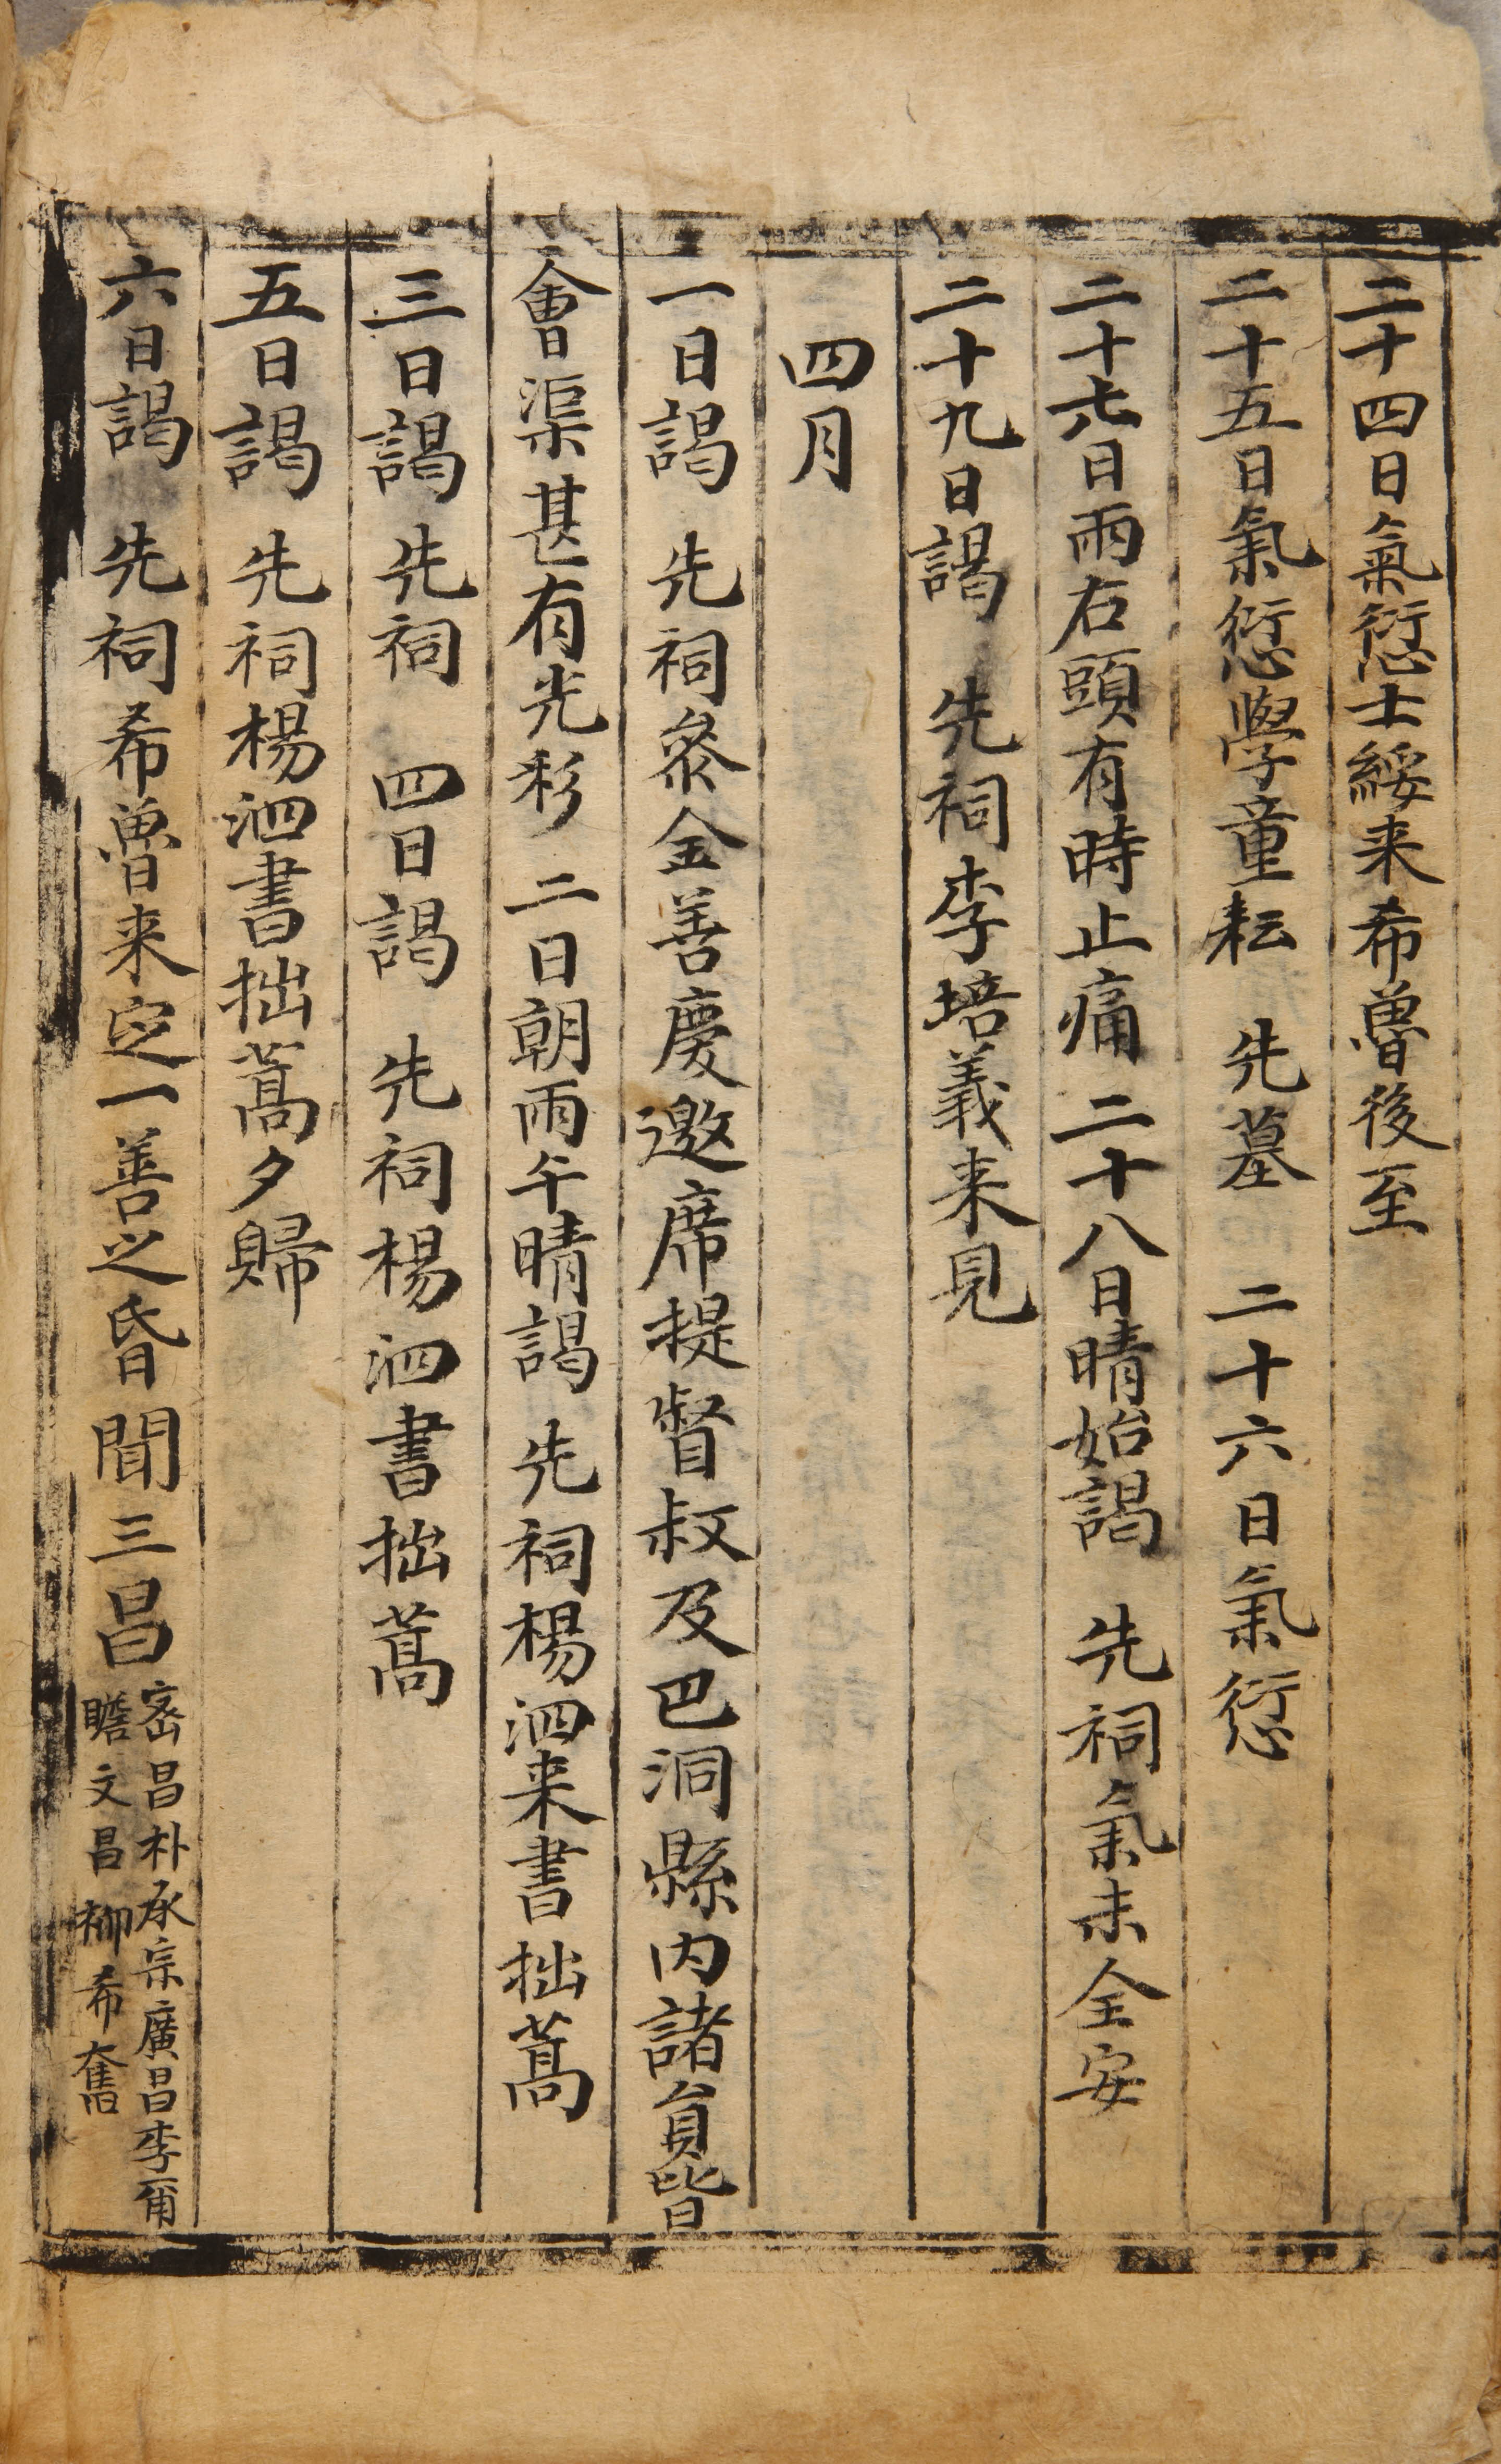 二十四日氣愆士綏来希魯後至
二十五日氣愆學童耘　先墓　二十六日氣愆
二十七日雨右頭有時止痛二十八日晴始謁　先祠氣未全安
二十九日謁　先祠李培義来見
四月
一日謁　先祠叅金善慶邀席提督叔及巴洞縣内諸員皆
會渠甚有光彩　二日朝雨午晴謁　先祠楊泗来書拙蒿
三日謁　先祠　四日謁　先祠楊泗書拙蒿
五日謁　先祠楊泗書拙蒿夕歸
六日謁　先祠希魯来定一善之昏聞三昌
密昌朴承宗廣昌李爾
瞻文昌柳希奮